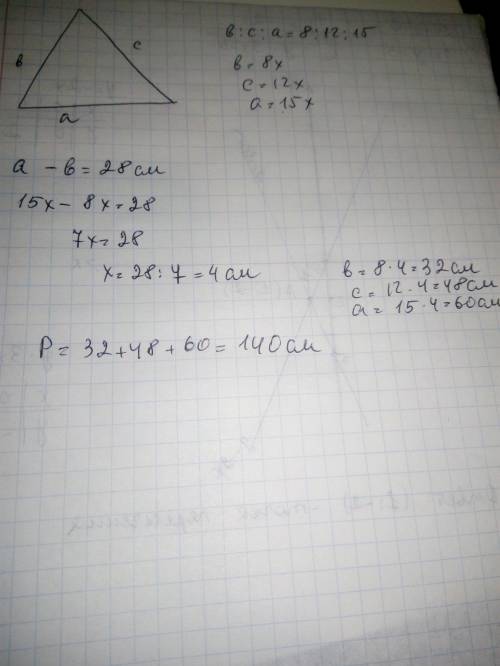 в
c
a
в : c : a = 8 : 12 : 15
в = 8x
c = 12x
a = 15x
a - в = 28 см
15x - 8x = 28
7x = 28
x = 28 : 7 = 4 см
в = 8 · 4 = 32 см
c = 12 · 4 = 48 см
a = 15 · 4 = 60 см
P = 32 + 48 + 60 = 140 см